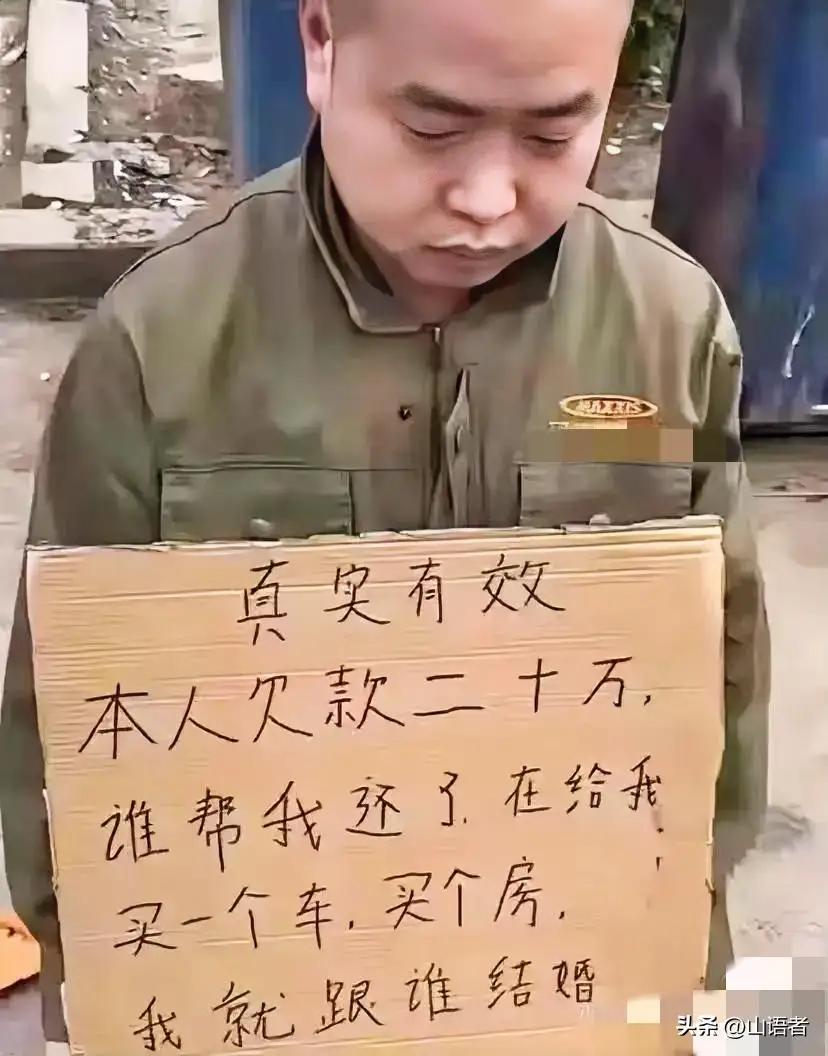 MAXXIS
真实有效
本人欠款二十万,
谁帮我还了.在给我
买一个车.买个房.
我就跟谁结婚
头条 @山语者